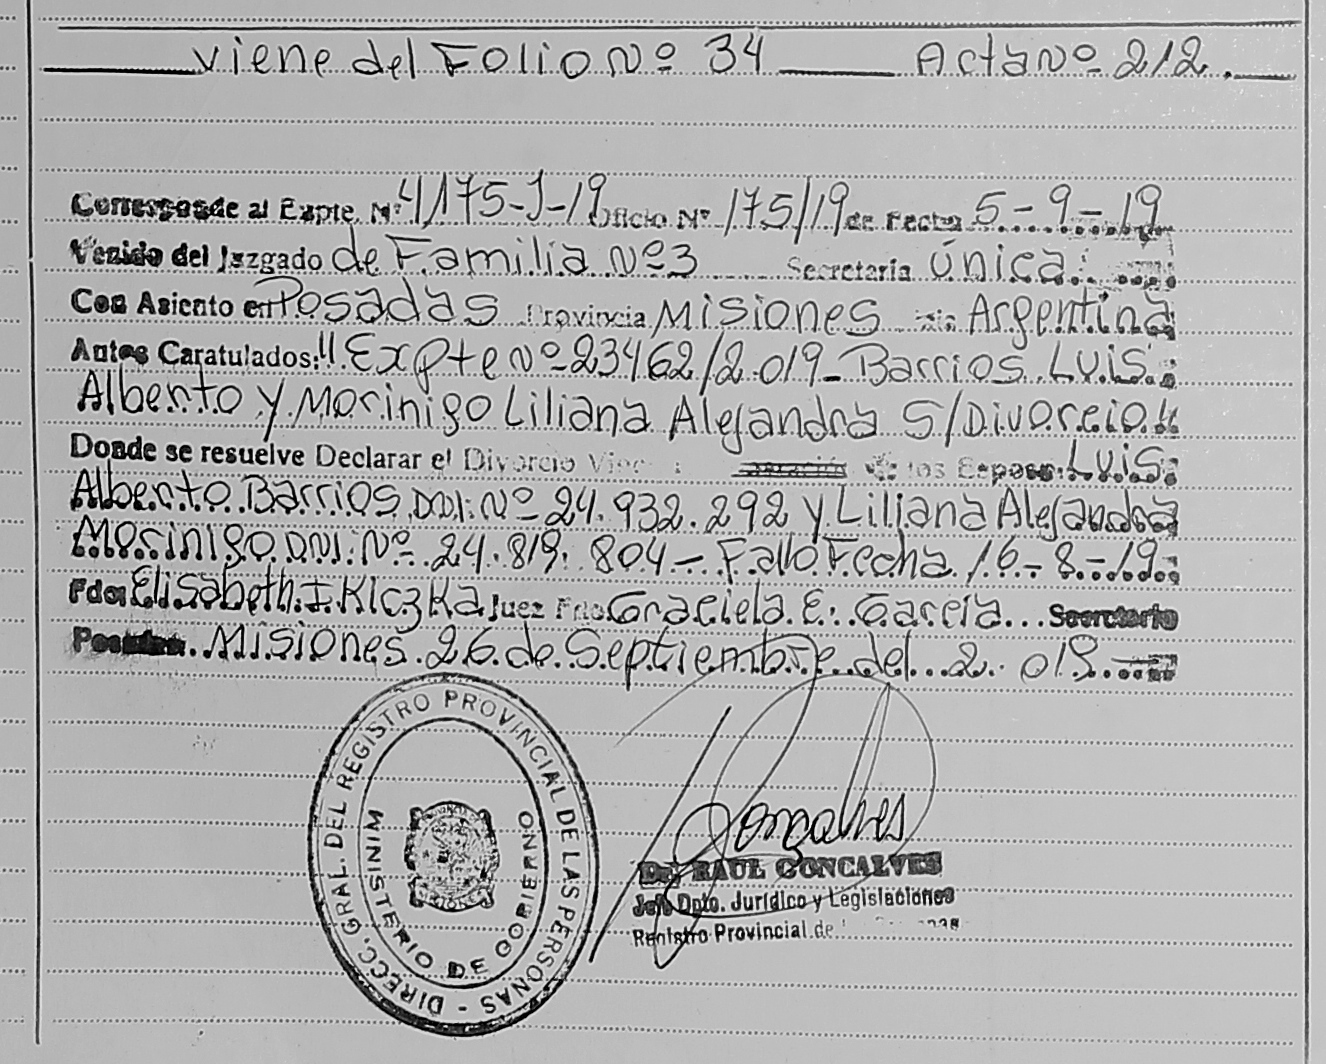 viene del Folio Nº 34 Acta Nº 212.
Corresponde al Expte. Nº 4175-J-19 Oficio Nº 175/19 de Fecha 5-9-19
Venido del Juzgado de Familia Nº 3 Secretaría única.
Con Asiento en Posadas Provincia Misiones Argentina
Autos Caratulados: "Expte Nº 23462/2.019- Barrios Luis
Alberto y Morinigo Liliana Alejandra S/Divorcio"
Donde se resuelve Declarar el Divorcio de los Esposos: Luis
Alberto Barrios DNI: Nº 24.932.292 y Liliana Alejandra
Morinigo DNI: Nº 24.819.804- Fallo Fecha 16-8-19
Fdo: Elisabeth I. Kiczka Juez Fdo Graciela E. Garcia Secretario
Posadas Misiones 26 de Septiembre del 2.019
DIRECC. GRAL. DEL REGISTRO PROVINCIAL DE LAS PERSONAS -
MINISTERIO DE GOBIERNO
Gonçalves
Dr. RAUL GONCALVES
Jefe Dpto. Jurídico y Legislaciones
Registro Provincial de